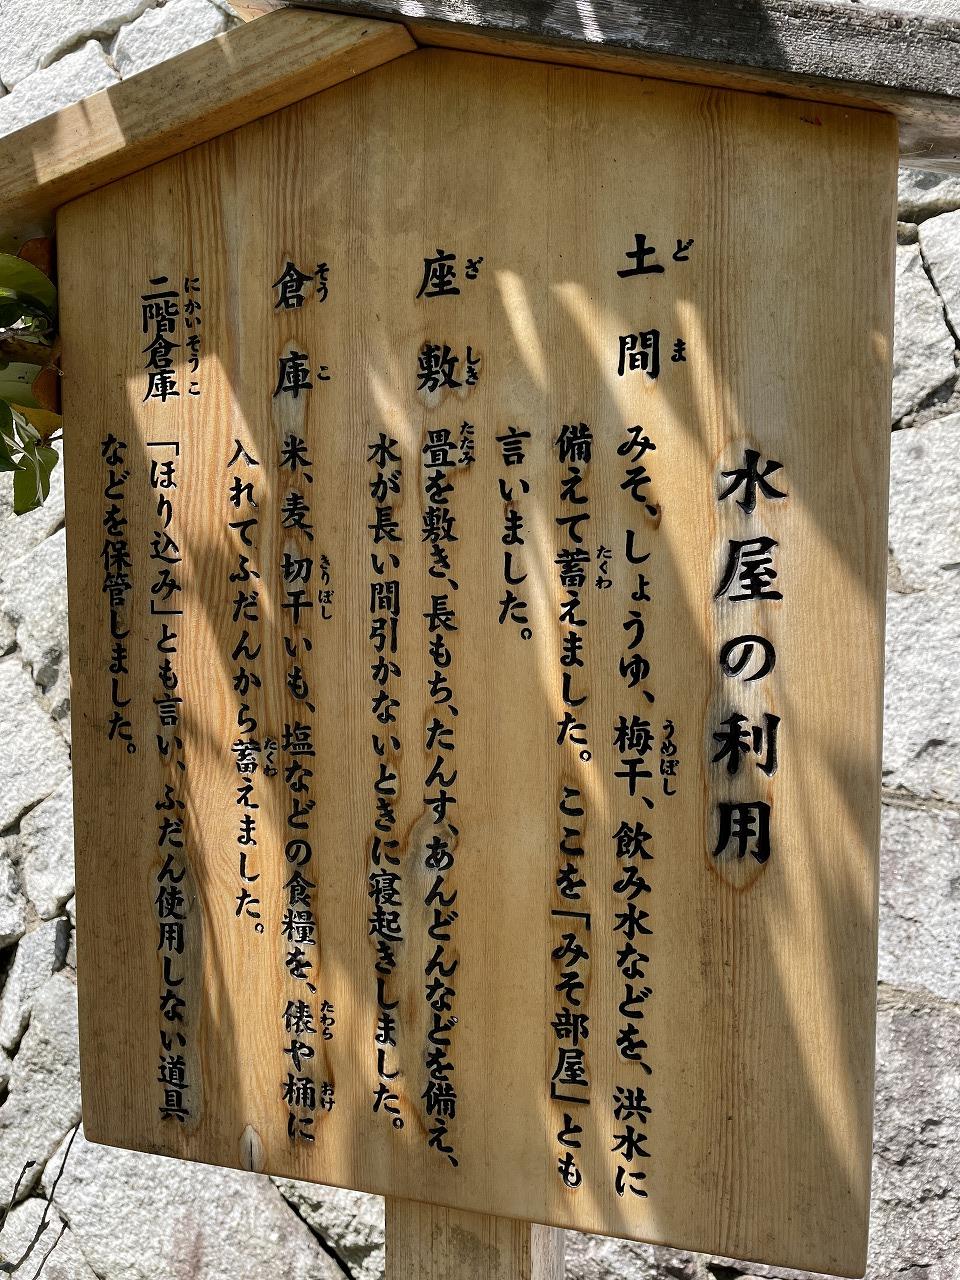 水屋の利用
土間 みそ、しょうゆ、梅干、飲み水などを、洪水に
備えて蓄えました。ここを「みそ部屋」とも
言いました。
座敷 畳を敷き、長もち、たんす、あんどんなどを備え、
水が長い間引かないときに寝起きしました。
倉庫 米、麦、切干いも、塩などの食糧を、俵や桶に
入れてふだんから蓄えました。
二階倉庫 「ほり込み」とも言い、ふだん使用しない道具
などを保管しました。
どま
うめぼし
たくわ
ざしき
たたみ
そうこ
きりぼし
たわら
おけ
たくわ
にかいそうこ